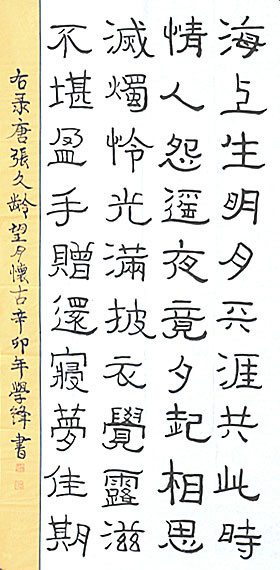 海上生明月天涯共此時
情人怨遥夜竟夕起相思
滅燭怜光滿披衣覺露滋
不堪盈手贈還寢夢佳期
右录唐張久齡望月懷古辛卯年學鋒書